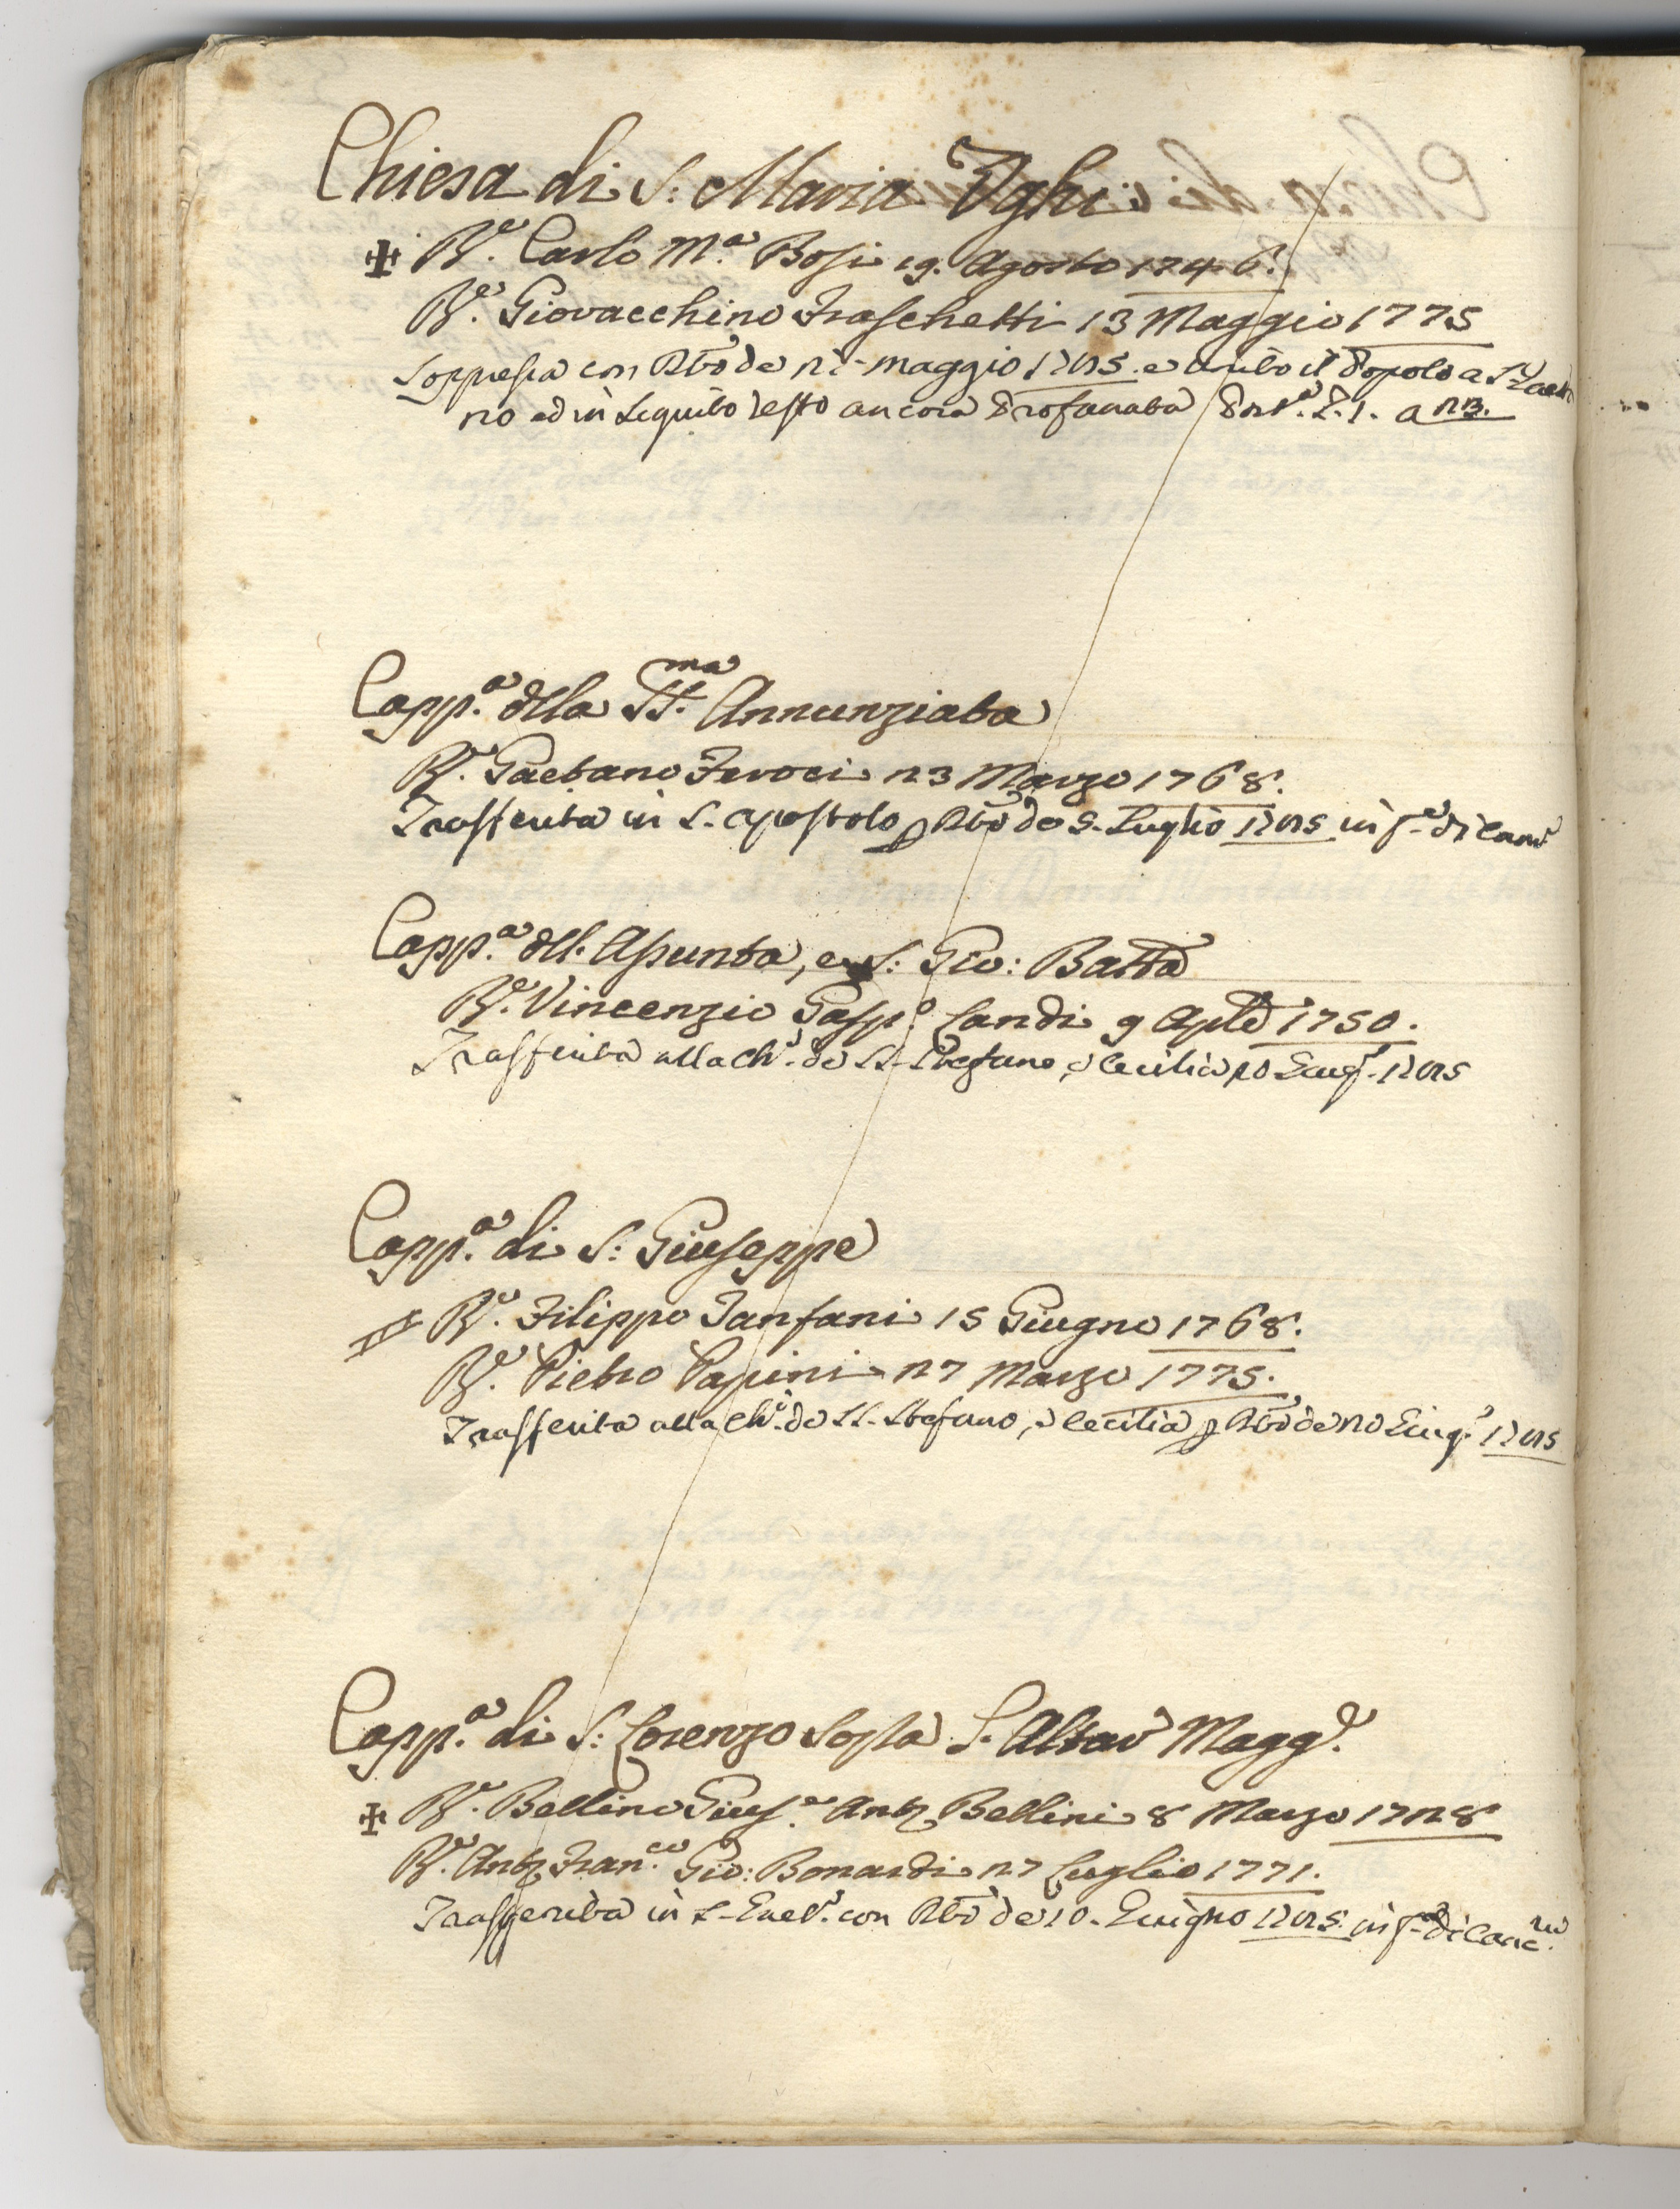 Chiesa di S: Maria Ughi
R.e Carlo M.a Bosi 19. Agosto 1746.
R.e Giovacchino Fraschetti 13 Maggio 1775
Soppressa con de 22 maggio 1785. e unito il Popolo a S. Gaeta
no ed in seguito resto ancora Profanata F. 1. a
Capp.a della SS.ma Annunziata
R.e Gaetano Feroci 23 Marzo 1768.
Trasferita in S. Apostolo p de 5. Luglio 1785 in f.a di
Capp.a dell. Assunta, e S: Gio: Batta
R.e Vincenzio Gasp.o Landi 9 Aple 1750.
Trasferita alla Ch.a de SS. Stefano, e Cecilia 20 Giug.o 1785
Capp.a di S: Giuseppe
R.e Filippo Tanfani 15 Giugno 1768.
R.e Pietro Papini 27 Marzo 1775.
Trasferita alla Ch.a de SS. Stefano, e Cecilia p de 20 Giug.o 1785
Capp.a di S: Lorenzo sopra l'Altar Magg.e
R.e Bellino Gius.e Ant. Bellini 8 Marzo 1728
R.e Ant. Fran.co Gio: Bonardi 27 Luglio 1771.
Trasferita in S. con de 20. Giugno 1785. in f.a di